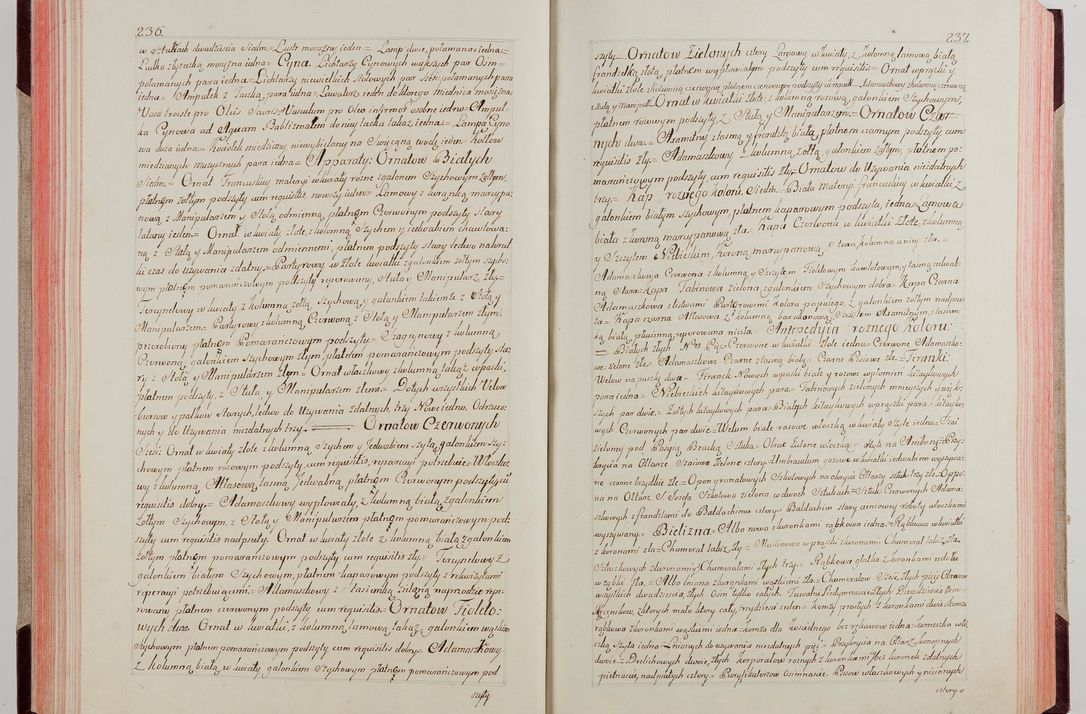 236.
w Sztukach dwadzieścia Siedm = Lustr mosiężny ieden = Lamp dwie, połamana iedna =
iedna = Cyna. Lichtarzy Cynowych większych par Ośm =
połamanych para iedna = Lichtarzy niewielkich Stołowych par połamanych para
iedna = Ampułek z Tacką para iedna = Lawaterz ieden do którego miednica mosiężna
Vasa troista pro Oleis Sacris = Vasculum pro Oleo infirmor: osobne iedno = Ampuł-
ka Cynowa ad Aquam Baptizmalem do niey tacka takaż iedna = Lampa Cyno
wa duża iedna = Kociołek miedziany niewybielony na Święconą wodę ieden = Kotłow
miedzianych muzycznych para iedna = Apparaty: Ornatow Białych
Siedm = Ornat Francuskiey materyi w kwiaty rożne z galonem Szychowym zołtym,
płatnem zołtym podszyty, cum requisitis, nowszy ieden = Lamowy z
nową z Manipularzem y Stołą odmienną płatnem Czerwonym podszyty Stary
łatany ieden = Ornat w kwiaty złote z kolumną Szychem y iedwabiem
ną z Stułą y Manipularzem odmiennemi, płatnem podszyty stary ledwo na krot
ki czas do używania zdatny = Partyrowy w złote kwiatki z galonkiem zołtym szycho-
wym płatnem pomarańczowym podszyty reperowany, Stuła y Manipularz złe =
Terpnelowy w kwiaty z kolumną zołtą Szychową y galonkiem takiemże z Stołą y
Manipularzem = Partyrowy z kolumną Czerwoną z Stołą y Manipularzem złym,
przerobiony płatnem Pomarańczowym podszyty = z kolumną
Czerwoną galonkiem Szychowym złym, płatnem pomarańczowym podszyty sta-
ry z Stołą y Manipularzem złem = Ornat włoczkowy z kolumną takąż w paski,
płatnem podszyty, z Stułą y Manipularzem złemi = Do tych wszystkich Velow
bursow y palkow starych, ledwo do Używania zdatnych, trzy Nowe iedne, Odrzuco-
nych y do Używania niezdatnych trzy. = Ornatow Czerwonych
Sześć: Ornat w kwiaty złote z kolumną Szychem y Jedwabiem szytą, galonkiem Szy-
chowym płatnem rożowym podszyty cum requisitis, reparacyi potrzebuie =
wy z kolumną Atłasową tasmą Jedwabną płatnem Czerwonym podszyty cum
requisitis dobry = Adamaszkowy wypłowiały, z kolumną białą z galonkiem
zołtym Szychowym, z Stołą y Manipularzem płatnem pomarańczowym pod-
szyty cum requisitis nadpsuty. Ornat w kwiaty złote z kolumną białą z galonkiem
zołtym płatnem pomarańczowym podszyty cum requisitis zły = Terpnelowy z
galonkiem białym Szychowem, płatnem kaparowym podszyty z rekwizytami
reperacyi potrzebuiącemi = Adamaszkowy z tasiemką zieloną naprzodzie repe-
rowany płatnem czerwonym podszyty cum requisitis = Ornatow Fioleto-
wych dwa Ornat w kwiatki, z kolumną lamową takąż galonkiem wązkim
Szychowym płatnem pomarańczowym podszyty cum requisitis dobry = Adamaszkowy
z Kolumną białą w kwiaty, galonkiem Szychowym płatnem pomarańczowym pod
szyty
237.
szyty = Ornatow Zielonych cztery Lamowy w kwiaty, z kolumną lamową białą
frandzelką złotą, płatnem wypłowiałym podszyty cum requisitis = Ornat w prążki y
kwiatki złote z kolumną czerwoną płatnem czerwonym podszyty cum requisit = Adamaszkowy z kolumną czerwoną
z Stułą y Manipul: Ornat w kwiatki złote, z kolumną rożową, galonkiem Szychowym,
płatnem rożowym podszyty, z Stułą y Manipularzem = Ornatow Czar-
nych dwa = Axamitny z tasmą y frandzlą białą, płatnem czarnym podszyty, cum
requisitis zły = Adamaszkowy z kolumną zołtą galonkiem zołtym, płatnem po-
marańczowym podszyty cum requisitis zły = Ornatow do Używania niezdatnych
trzy = Kap rożnego koloru Siedm. Biała Materyi francuskiey w kwiatki z
galonkiem białym Szychowym, płatnem kaparowym podszyta, iedna = Lamowa
biała z koroną marcypanową zła = Kapa Czerwona w kwiatki złote z kolumną
y Szczytem Niebieskim, koroną marcypanową Stara kolumna u niey zła =
Adamaszkowa Czerwona z kolumną y Szczytem Fioletowym kamlotowym, y tasmą iedwab-
ną Stara = Kapa Tabinowa zielona z galonkiem Szychowym dobra = Kapa Czarna
Adamaszkowa z listwami Partyrowemi Koloru papuzego, z galonkiem zołtym nadpsu-
ta = Kapa czarna Atłasowa z kolumną barakanową y Szczytem Axamitnym, z tasiem-
ką białą płucienną reperowana niezła. Antepedyia rożnego Koloru:
= Białych złych Nro Pięć = Czerwone w kwiatki złote iedno = Czerwone Adamaszko-
we zielone złe = Adamaszkowe Czarne z tasmą białą = Czarne Pisowe złe = Firanki:
Welow na puszkę dwa = Firanek Nowych w paski białe y rożowe w płomień kitaykowych
para iedna = Niebieskich kitaykowych para = Tabinowych zielonych mnieyszych y więk-
szych par dwie = Zołtych kitaykowych para = Białych kitaykowych w prążki para = kitayko-
wych Czerwonych par dwie = Welum białe rasowe włoczką w kwiaty Szyte iedno = Trai
zieloney pod Pasyią Bracką Sztuka = Obicie Zielone włoczką Szyte na Ambonę = Przy-
krycia na Ołtarze Traiowe Zielone cztery = Umbraculum gazowe w kwiatki iedwabiem wyszywa-
ne czarne brzydkie złe = Opon granatowych Szkotowych na okrycie Ołtarzy sztuk trzy złe = Oppo-
na na Ołtarz S. Jozefa Szkotowa zielona w dwoch Sztukach = Sztuk Czerwonych Adama-
szkowych z frandzlami do Baldachimu cztery = Baldachim stary cienowey roboty włoczkami
wyszywany = Bielizna = Alba nowa z koronkami rąbkowa iedna = Rąbkowa w kwiatki
z koronami zła = Chumerał także zły = Muslinowa w prążki z koronami Chumerał także zła =
Sztuczkowych z koronami y Chumerałami złych trzy = Rąbkowa gładka z koronkami iedwabn:
w ząbki zła = Alba z koronkami wązkiemi zła = Chumerałow Sześć złych pięć Obrusow
wszystkich dwadzieścia, złych Ośm tylko całych, Tuwalni Puryfikaterzow Dwadzieścia Ośm =
Ręcznikow, zdolnych mało cztery cały, ieden = Komży prostych z koronkami dwie, komża
rąbkowa z koronkami wązkiemi iedna = Komża dla Kościelnego bez rękawow iedna = komeszka stu-
czką szyta iedna = Lnianych do używania niezdatnych pięć = Przykrycia na Ołtarz konopnych
dwoie = Drelichowych dwoie, złych Korporałow rożnych z koronkami y bez koronek zdatnych
piętnaście, nadpsutych cztery = Puryfikaterzow Ośmnaście. Pasow włoczkowych y nicianych
cztery =